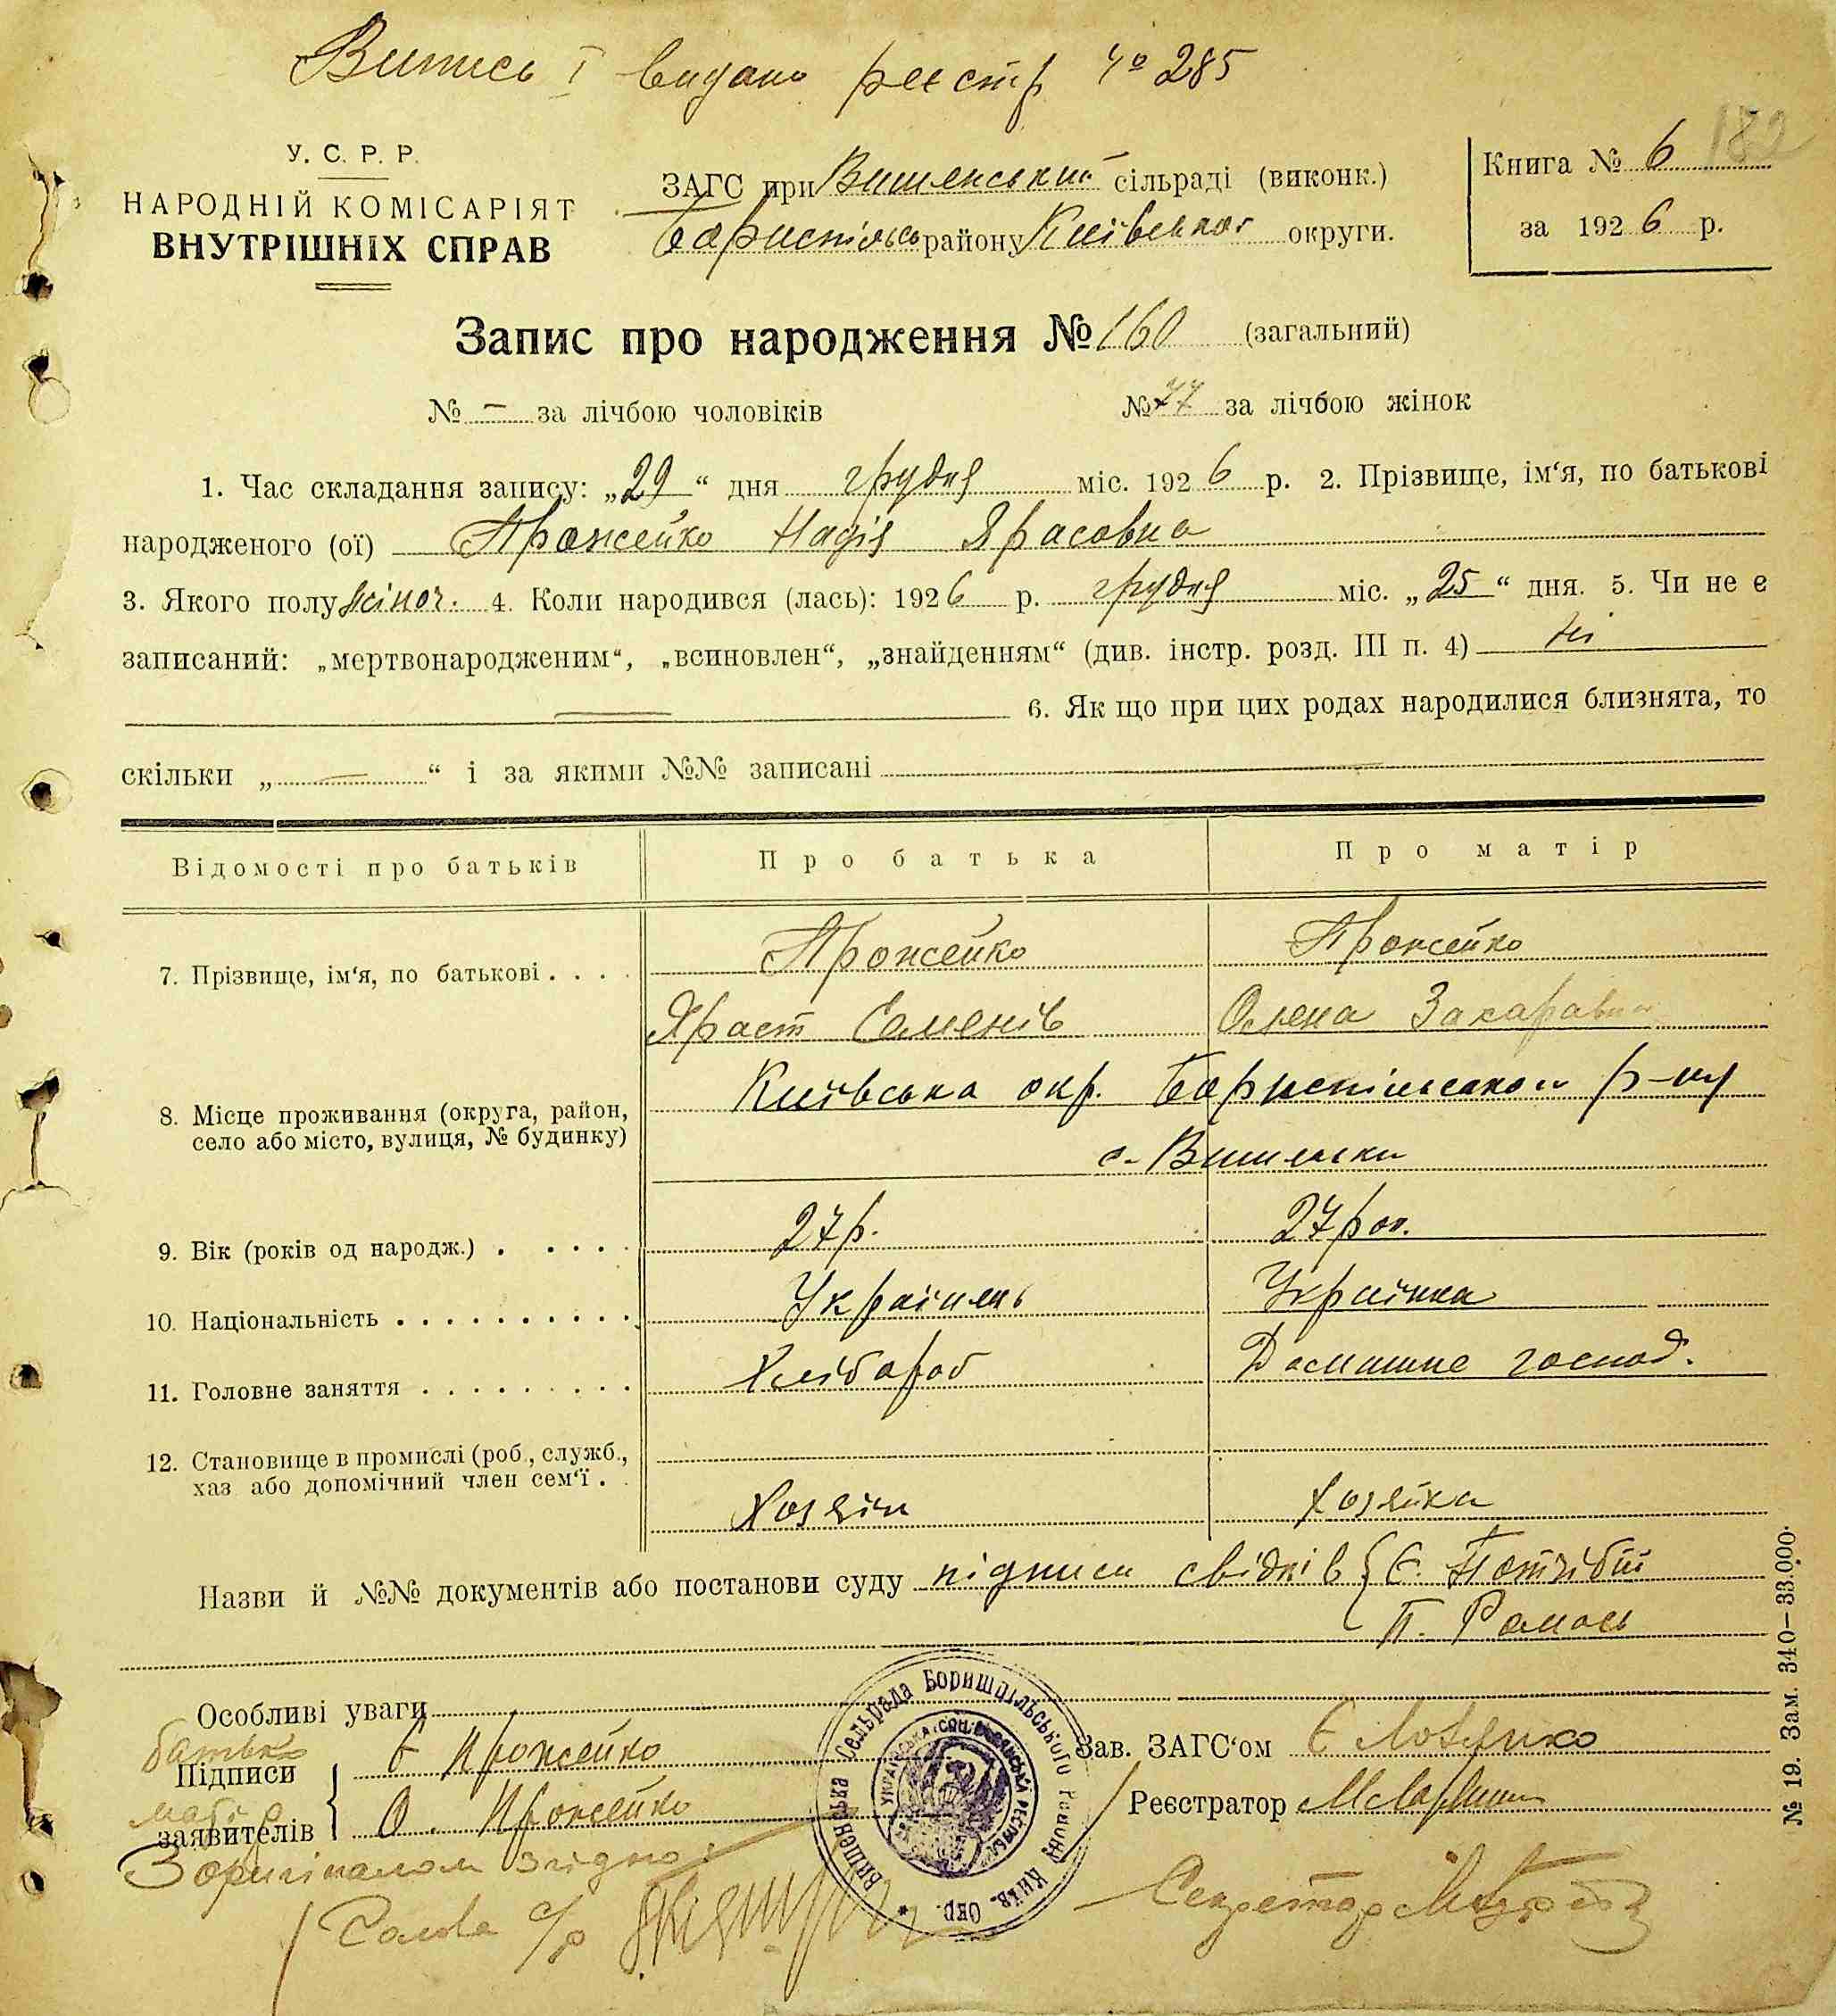 Випись I видано реєстр № 285
182
У. С. Р. Р.
НАРОДНІЙ КОМІСАРІЯТ
ВНУТРІШНІХ СПРАВ
ЗАГС при Вишенський сільраді (виконк.)
Бориспільсь району Київської округи.
Книга № 6
за 1926 р.
Запис про народження № 160 (загальний)
№ – за лічбою чоловіків № 77 за лічбою жінок
1. Час складання запису: „29“ дня грудня міс. 1926 р. 2. Прізвище, ім‘я, по батькові
народженого (ої) Прожейко Надія Ярасовна
3. Якого полу жіноч. 4. Коли народився (лась): 1926 р. грудня міс. „25“ дня. 5. Чи не є
записаний: „мертвонародженим“, „всиновлен“, „знайденням“ (див. інстр. розд. III п. 4) ні
6. Як що при цих родах народилися близнята, то
скільки „ — “ і за якими №№ записані
Відомості про батьків Про батька Про матір
7. Прізвище, ім‘я, по батькові . . . . Прожейко Прожейко
Яраст Семенів Олена Захаравна
8. Місце проживання (округа, район, Київська окр. Бориспільської р-ну
село або місто, вулиця, № будинку) с. Вишеньки
9. Вік (років од народж.) . . . . . 27 р. 27 рок.
10. Національність . . . . . . . . . . Українець Українка
11. Головне заняття . . . . . . . . . Хлібороб Домашнє господ.
12. Становище в промислі (роб., служб.,
хаз або допомічний член сем‘ї . . Хозяїн Хозяйка
Назви й №№ документів або постанови суду підписи свідків { Є.
П. Ромась
Особливі уваги
батько
Підписи Прожейко
заявителів О. Прожейко
Зав. ЗАГС‘ом Є
Реєстратор
Вишенська Сельрада Боришпільського Району Київ. Окр.
УКРАЇНСЬКА СОЦ. РАДЯНСЬКА РЕСПУБ.
З оригіналом згідно:
Голова с/р
Секретар
№ 19. Зам. 340—33.000.